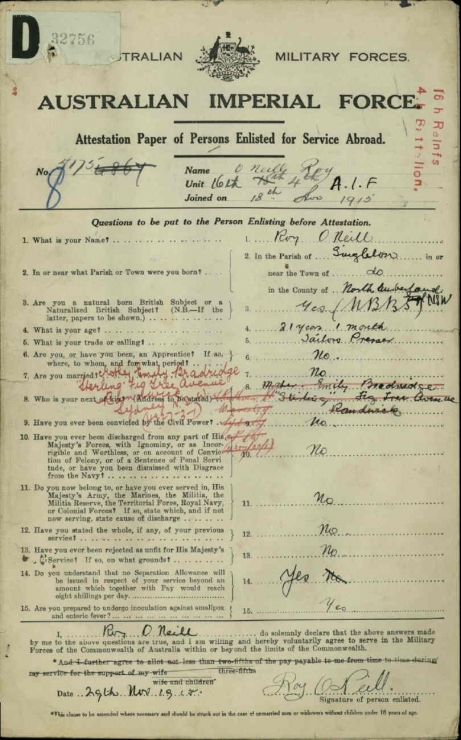 D
32756
AUSTRALIAN MILITARY FORCES.
AUSTRALIAN IMPERIAL FORCE.
16th Reinfs
4th Battalion.
Attestation Paper of Persons Enlisted for Service Abroad.
No. 5175 4864
8
Name O'Neill Roy
Unit 16th 4th A.I.F
Joined on 18th Nov 1915
Questions to be put to the Person Enlisting before Attestation.
1. What is your Name? 1. Roy O'Neill
2. In or near what Parish or Town were you born? 2. In the Parish of Singleton in or
near the Town of do
in the County of Northumberland NSW
3. Are you a natural born British Subject or a
Naturalized British Subject? (N.B.—If the
latter, papers to be shown.) 3. Yes (NBBS)
4. What is your age? 4. 21 years 1 month
5. What is your trade or calling? 5. Tailors Presser
6. Are you, or have you been, an Apprentice? If so,
where, to whom, and for what period? 6. No
7. Are you married? 7. No
Mother Emily Bradridge
Sterling Fig Tree Avenue
Sydney
8. Who is your next of kin? (Address to be stated) 8. Mother Emily Bradridge
Fig Tree Avenue
Randwick
9. Have you ever been convicted by the Civil Power? 9. No
10. Have you ever been discharged from any part of His
Majesty's Forces, with Ignominy, or as Incor-
rigible and Worthless, or on account of Convic-
tion of Felony, or of a Sentence of Penal Servi-
tude, or have you been dismissed with Disgrace
from the Navy? 10. No
11. Do you now belong to, or have you ever served in, His
Majesty's Army, the Marines, the Militia, the
Militia Reserve, the Territorial Force, Royal Navy,
or Colonial Forces? If so, state which, and if not
now serving, state cause of discharge 11. No
12. Have you stated the whole, if any, of your previous
service? 12. No
13. Have you ever been rejected as unfit for His Majesty's
Service? If so, on what grounds? 13. No
14. Do you understand that no Separation Allowance will
be issued in respect of your service beyond an
amount which together with Pay would reach
eight shillings per day. 14. Yes No
15. Are you prepared to undergo inoculation against smallpox
and enteric fever? 15. Yes
I, Roy O'Neill do solemnly declare that the above answers made
by me to the above questions are true, and I am willing and hereby voluntarily agree to serve in the Military
Forces of the Commonwealth of Australia within or beyond the limits of the Commonwealth.
*And I further agree to allot not less than two-fifths of the pay payable to me from time to time during
three-fifths
my service for the support of my wife
wife and children
Date 29th Nov. 1915. Roy O'Neill.
Signature of person enlisted.
*This clause to be amended where necessary and should be struck out in the case of unmarried men or widowers without children under 18 years of age.